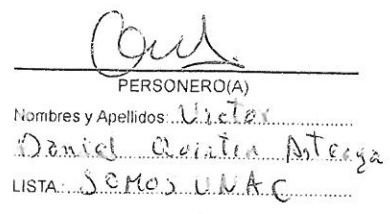 PERSONERO(A)
Nombres y Apellidos: Victor
Daniel Quintin Arteaga
LISTA: SOMOS UNAC